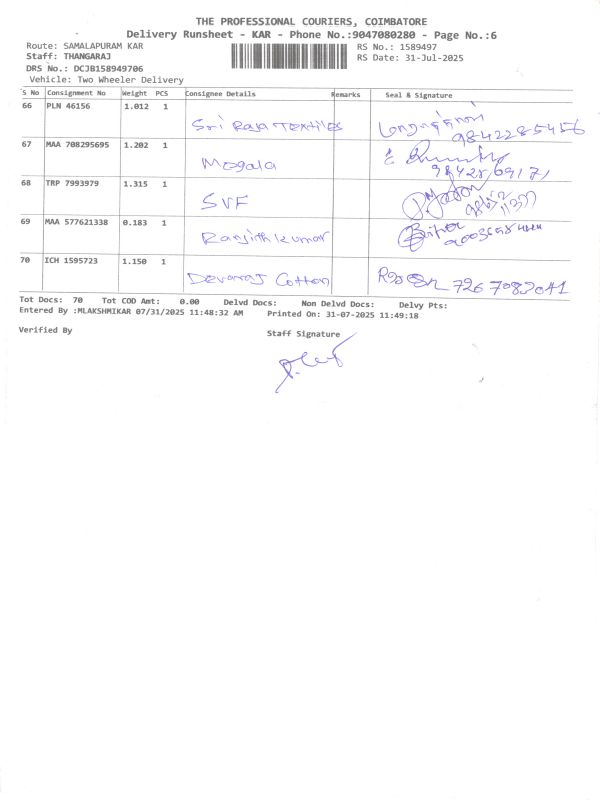 THE PROFESSIONAL COURIERS, COIMBATORE
Delivery Runsheet - KAR - Phone No.:9047080280 - Page No.:6
Route: SAMALAPURAM KAR
RS No.: 1589497
Staff: THANGARAJ
RS Date: 31-Jul-2025
DRS No.: DCJB158949706
Vehicle: Two Wheeler Delivery
S No Consignment No Weight PCS Consignee Details Remarks Seal & Signature
66 PLN 46156 1.012 1
Sri Raja Textiles
9842285456
67 MAA 708295695 1.202 1
Mogala
68 TRP 7993979 1.315 1
SVF
69 MAA 577621338 0.183 1
Ranjithkumar
70 ICH 1595723 1.150 1
Devaraj Cotton
7267082041
Tot Docs: 70 Tot COD Amt: 0.00 Delvd Docs: Non Delvd Docs: Delvy Pts:
Entered By :MLAKSHMIKAR 07/31/2025 11:48:32 AM Printed On: 31-07-2025 11:49:18
Verified By
Staff Signature